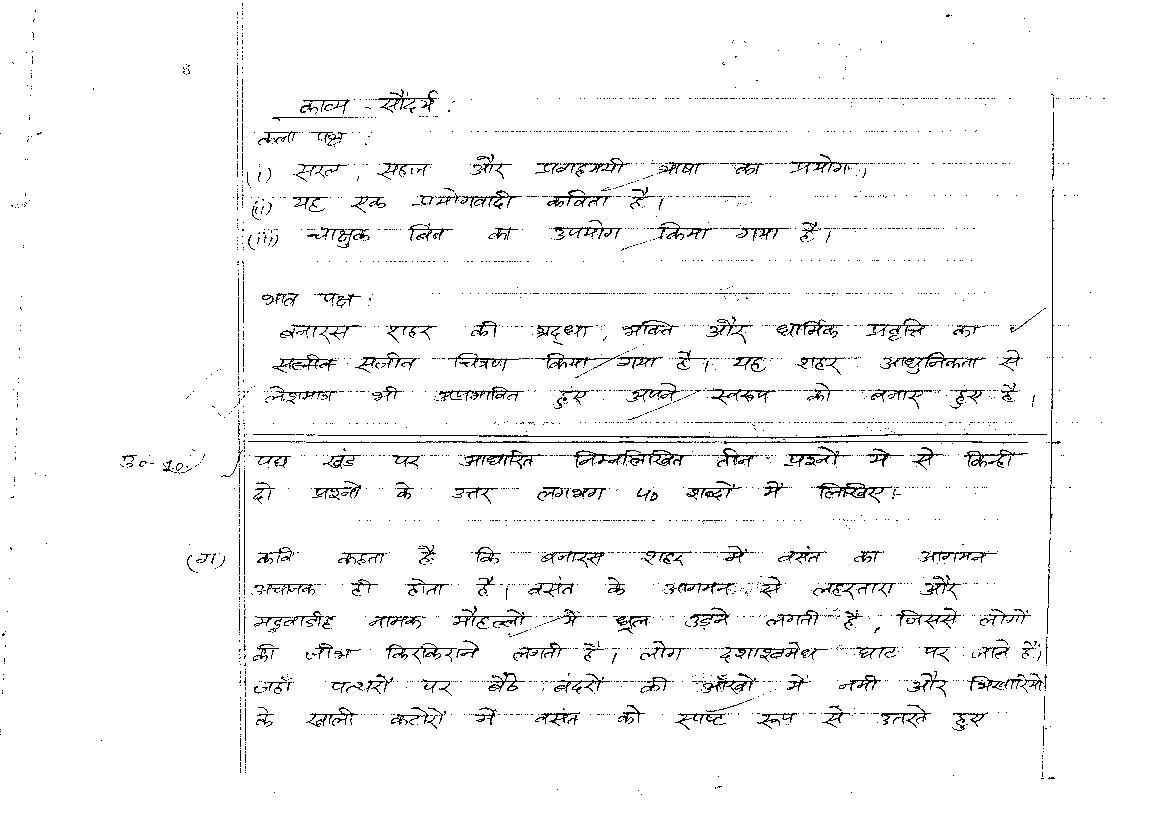 8
काव्य - सौंदर्य :
कला पक्ष :
(i) सरल, सहज और प्रवाहमयी भाषा का प्रयोग।
(ii) यह एक प्रयोगवादी कविता है।
(iii) चाक्षुक बिंब का उपयोग किया गया है।
भाव पक्ष :
बनारस शहर की श्रद्धा, भक्ति और धार्मिक प्रवृत्ति का
सजीव चित्रण किया गया है। यह शहर आधुनिकता से
लेशमात्र भी अप्रभावित हुए अपने स्वरूप को बनाए हुए है।
उ०-10. पद्य खंड पर आधारित निम्नलिखित तीन प्रश्नों में से किन्हीं
दो प्रश्नों के उत्तर लगभग 40 शब्दों में लिखिए:-
(ग) कवि कहता है कि बनारस शहर में वसंत का आगमन
अचानक ही होता है। वसंत के आगमन से लहरतारा और
मडुवाडीह नामक मौहल्लों में धूल उड़ने लगती है, जिससे लोगों
की जीभ किरकिराने लगती है। लोग दशाश्वमेध घाट पर जाते हैं।
जहाँ पत्थरों पर बैठे बंदरों की आँखों में नमी और भिखारियों
के खाली कटोरों में वसंत को स्पष्ट रूप से उतरते हुए